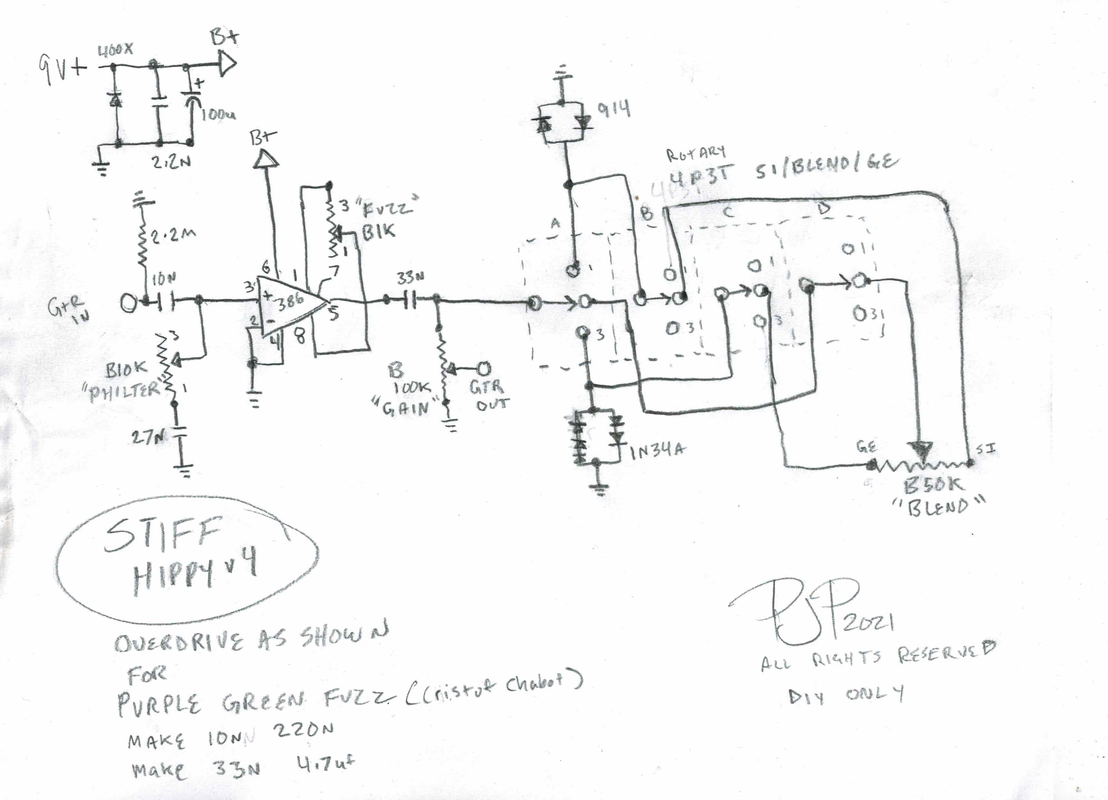 9V+ 400X B+
+
100u
2.2N
2.2M
10N
GTR
IN
B10K
"PHILTER"
3
1
27N
B+
6
1
3
+
386
2
-
4
8
7
5
3
1
"FUZZ"
B1K
33N
B
100K
"GAIN"
GTR
OUT
914
ROTARY
4P3T SI/BLEND/GE
A
B
C
D
1
3
3
1
3
1
3
1
1N34A
GE
SI
B50K
"BLEND"
STIFF
HIPPY v4
OVERDRIVE AS SHOWN
FOR
PURPLE GREEN FUZZ (Cristof Chabot)
MAKE 10N 220N
Make 33N 4.7uf
PJP 2021
ALL RIGHTS RESERVED
DIY ONLY